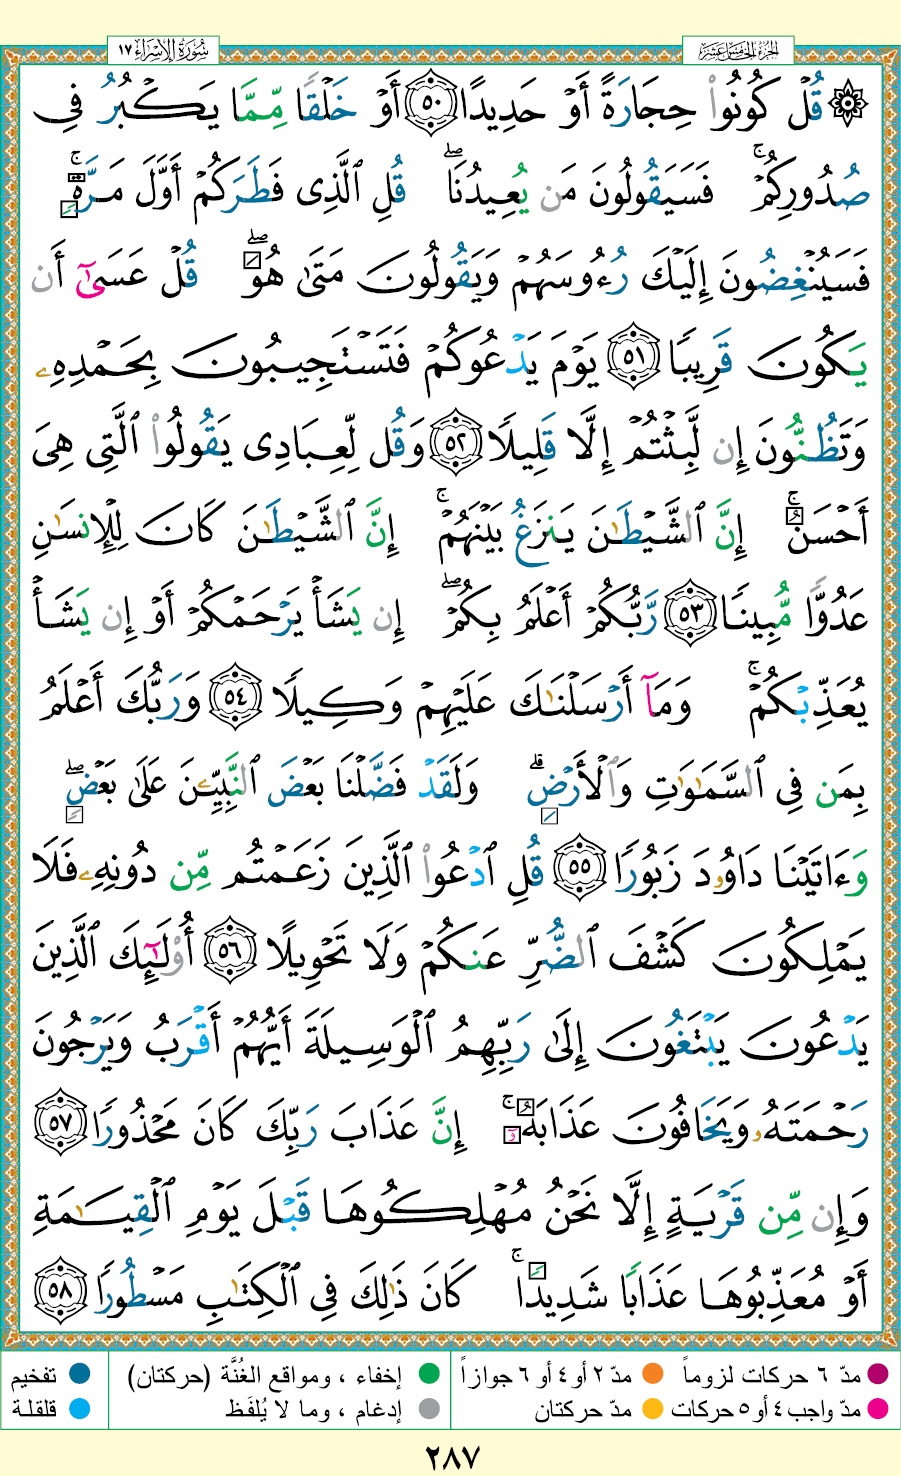 سُورَةُ الإِسْرَاء ١٧
الجزء الخامس عشر
۞ قُلْ كُونُوا۟ حِجَارَةً أَوْ حَدِيدًا ٥٠ أَوْ خَلْقًا مِّمَّا يَكْبُرُ فِى
صُدُورِكُمْ ۚ فَسَيَقُولُونَ مَن يُعِيدُنَا ۖ قُلِ ٱلَّذِى فَطَرَكُمْ أَوَّلَ مَرَّةٍ ۚ
فَسَيُنْغِضُونَ إِلَيْكَ رُءُوسَهُمْ وَيَقُولُونَ مَتَىٰ هُوَ ۖ قُلْ عَسَىٰٓ أَن
يَكُونَ قَرِيبًا ٥١ يَوْمَ يَدْعُوكُمْ فَتَسْتَجِيبُونَ بِحَمْدِهِۦ
وَتَظُنُّونَ إِن لَّبِثْتُمْ إِلَّا قَلِيلًا ٥٢ وَقُل لِّعِبَادِى يَقُولُوا۟ ٱلَّتِى هِىَ
أَحْسَنُ ۚ إِنَّ ٱلشَّيْطَـٰنَ يَنزَغُ بَيْنَهُمْ ۚ إِنَّ ٱلشَّيْطَـٰنَ كَانَ لِلْإِنسَـٰنِ
عَدُوًّا مُّبِينًا ٥٣ رَّبُّكُمْ أَعْلَمُ بِكُمْ ۖ إِن يَشَأْ يَرْحَمْكُمْ أَوْ إِن يَشَأْ
يُعَذِّبْكُمْ ۚ وَمَآ أَرْسَلْنَـٰكَ عَلَيْهِمْ وَكِيلًا ٥٤ وَرَبُّكَ أَعْلَمُ
بِمَن فِى ٱلسَّمَـٰوَٰتِ وَٱلْأَرْضِ ۗ وَلَقَدْ فَضَّلْنَا بَعْضَ ٱلنَّبِيِّـۧنَ عَلَىٰ بَعْضٍ ۖ
وَءَاتَيْنَا دَاوُۥدَ زَبُورًا ٥٥ قُلِ ٱدْعُوا۟ ٱلَّذِينَ زَعَمْتُم مِّن دُونِهِۦ فَلَا
يَمْلِكُونَ كَشْفَ ٱلضُّرِّ عَنكُمْ وَلَا تَحْوِيلًا ٥٦ أُو۟لَـٰٓئِكَ ٱلَّذِينَ
يَدْعُونَ يَبْتَغُونَ إِلَىٰ رَبِّهِمُ ٱلْوَسِيلَةَ أَيُّهُمْ أَقْرَبُ وَيَرْجُونَ
رَحْمَتَهُۥ وَيَخَافُونَ عَذَابَهُۥٓ ۚ إِنَّ عَذَابَ رَبِّكَ كَانَ مَحْذُورًا ٥٧
وَإِن مِّن قَرْيَةٍ إِلَّا نَحْنُ مُهْلِكُوهَا قَبْلَ يَوْمِ ٱلْقِيَـٰمَةِ
أَوْ مُعَذِّبُوهَا عَذَابًا شَدِيدًا ۚ كَانَ ذَٰلِكَ فِى ٱلْكِتَـٰبِ مَسْطُورًا ٥٨
مدّ ٦ حركات لزوماً
مدّ ٢ أو ٤ أو ٦ جوازاً
إخفاء ، ومواقع الغُنَّة (حركتان)
تفخيم
مدّ واجب ٤ أو ٥ حركات
مدّ حركتان
إدغام ، وما لا يُلفَظ
قلقلة
٢٨٧